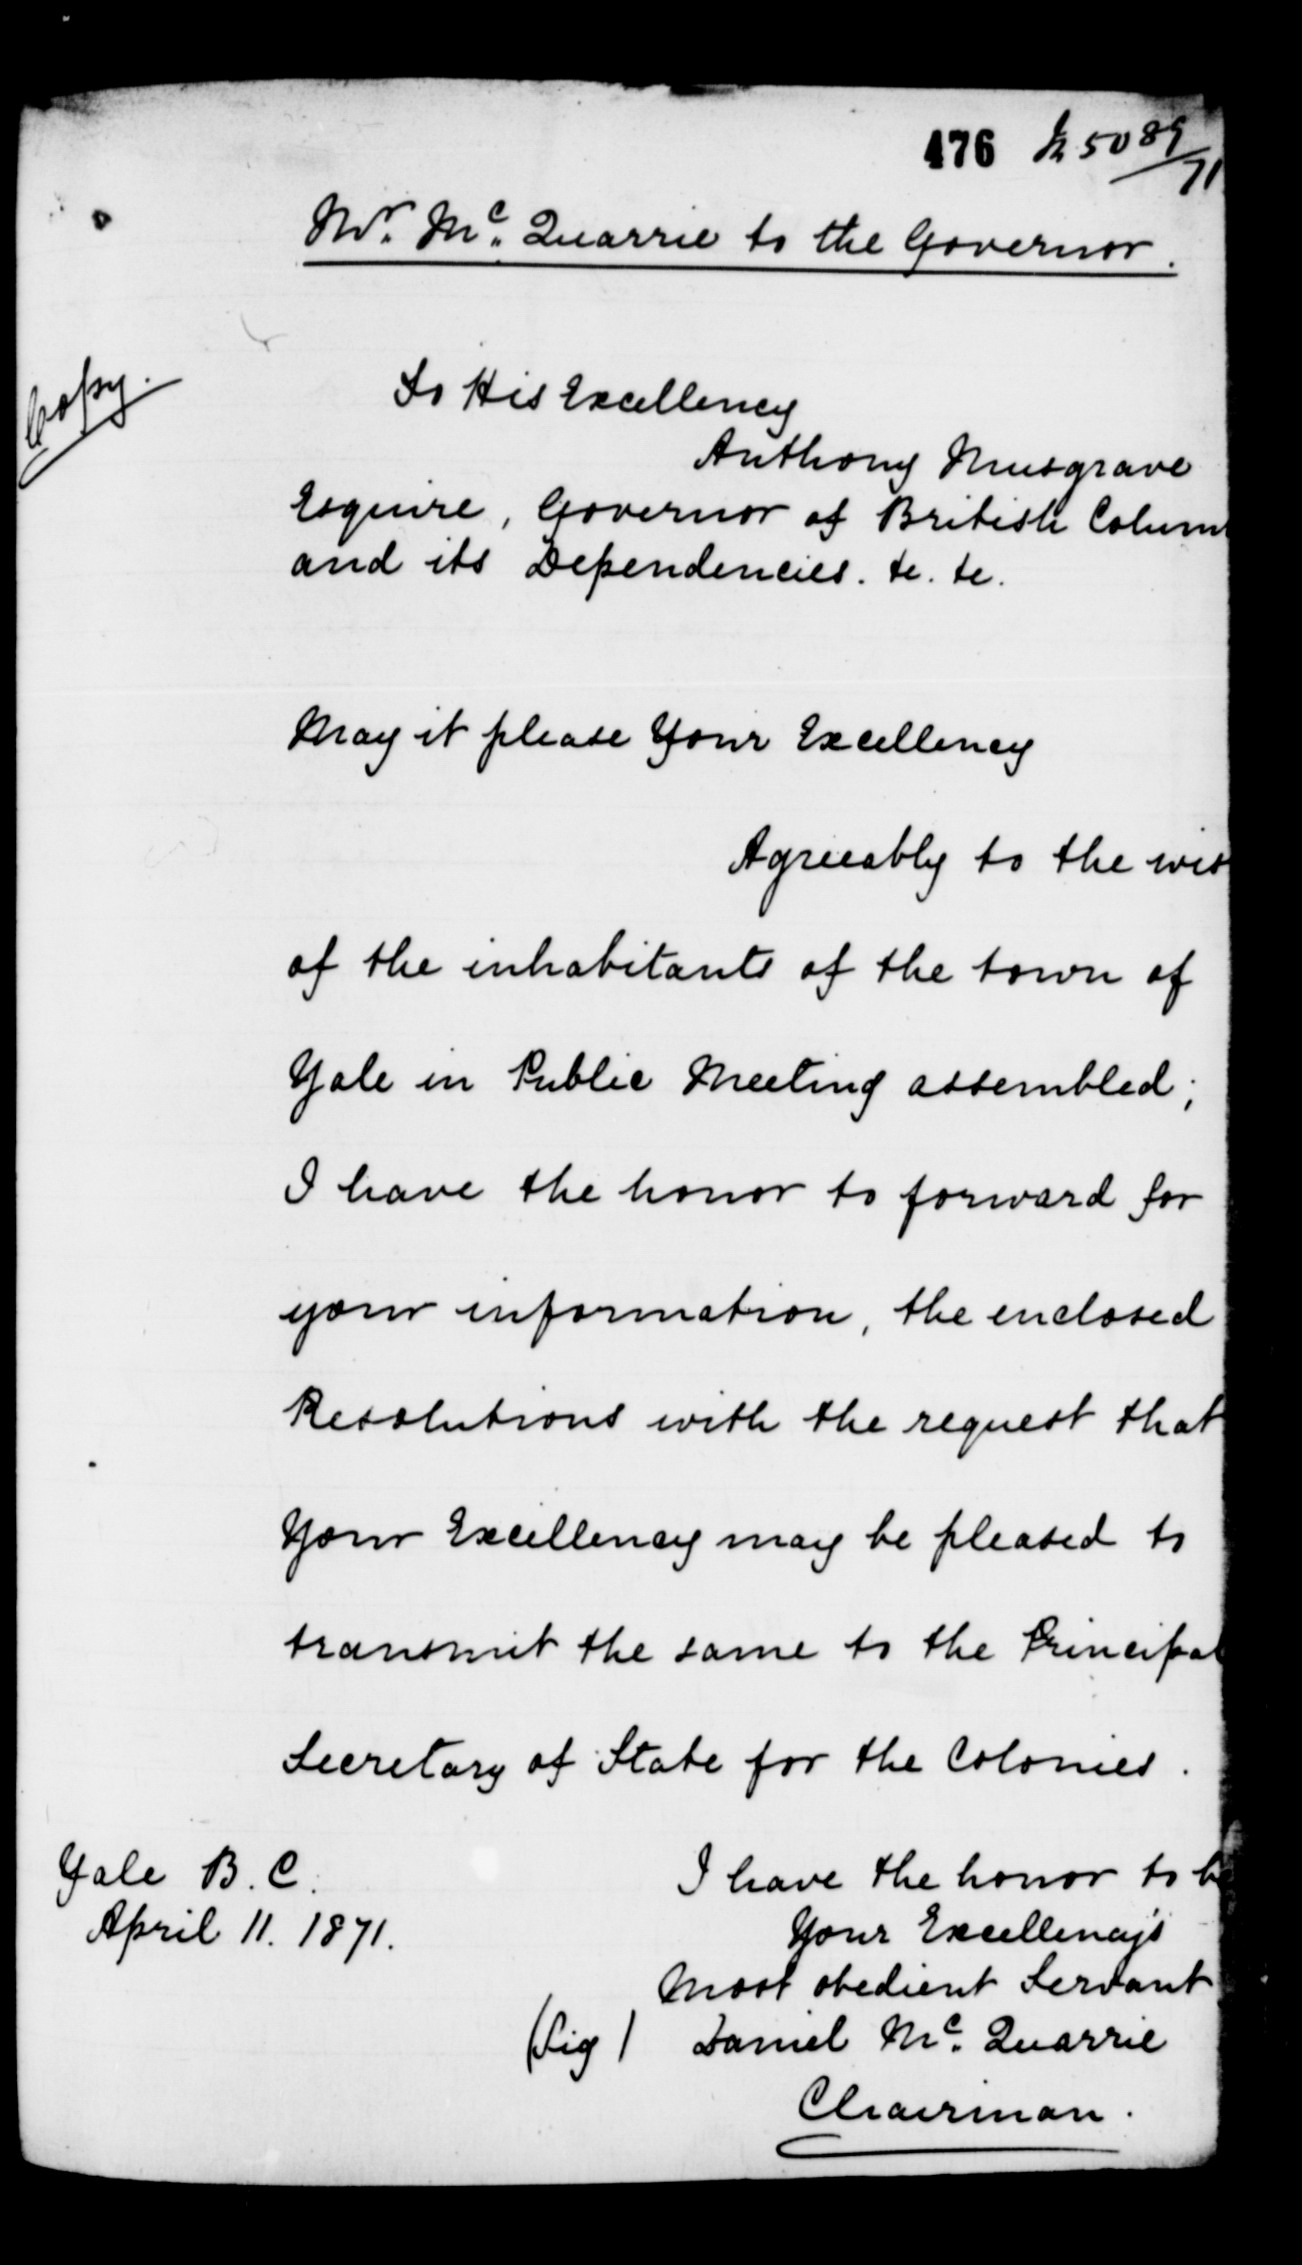 476 In 5089/71
Mr. Mc. Quarrie to the Governor.
Copy.
To His Excellency
Anthony Musgrave
Esquire, Governor of British Colum
and its Dependencies. &c. &c.
May it please Your Excellency
Agreeably to the wis
of the inhabitants of the town of
Yale in Public Meeting assembled;
I have the honor to forward for
your information, the enclosed
Resolutions with the request that
Your Excellency may be pleased to
transmit the same to the Principal
Secretary of State for the Colonies.
Yale B.C.
April 11. 1871.
I have the honor to be
Your Excellency's
Most obedient Servant
(Sig) Daniel Mc. Quarrie
Chairman.